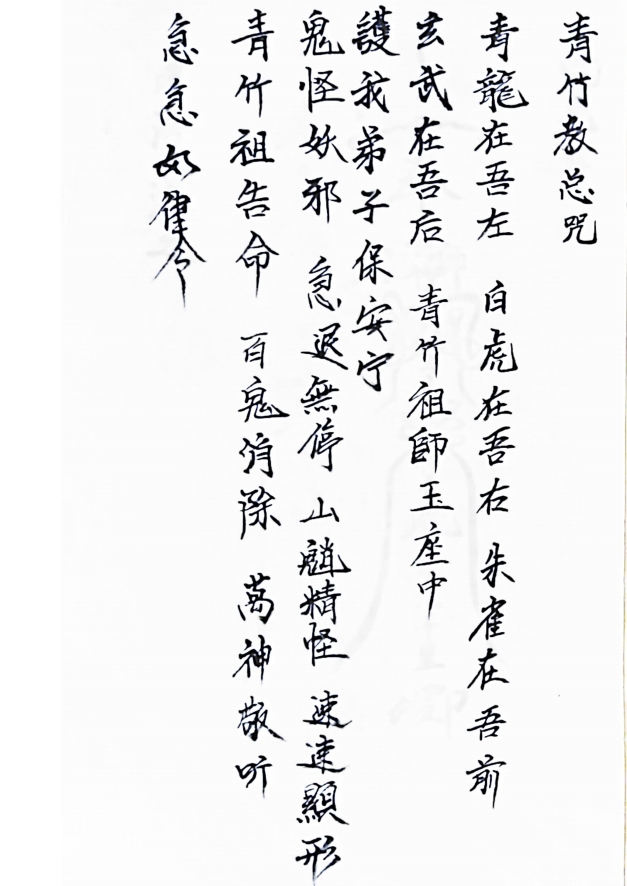 青竹教总咒
青龍在吾左 白虎在吾右 朱雀在吾前
玄武在吾后 青竹祖師玉座中
護我弟子保安宁
鬼怪妖邪 急退無停 山魈精怪 速速顯形
青竹祖告命 百鬼消除 萬神敬听
急急如律令